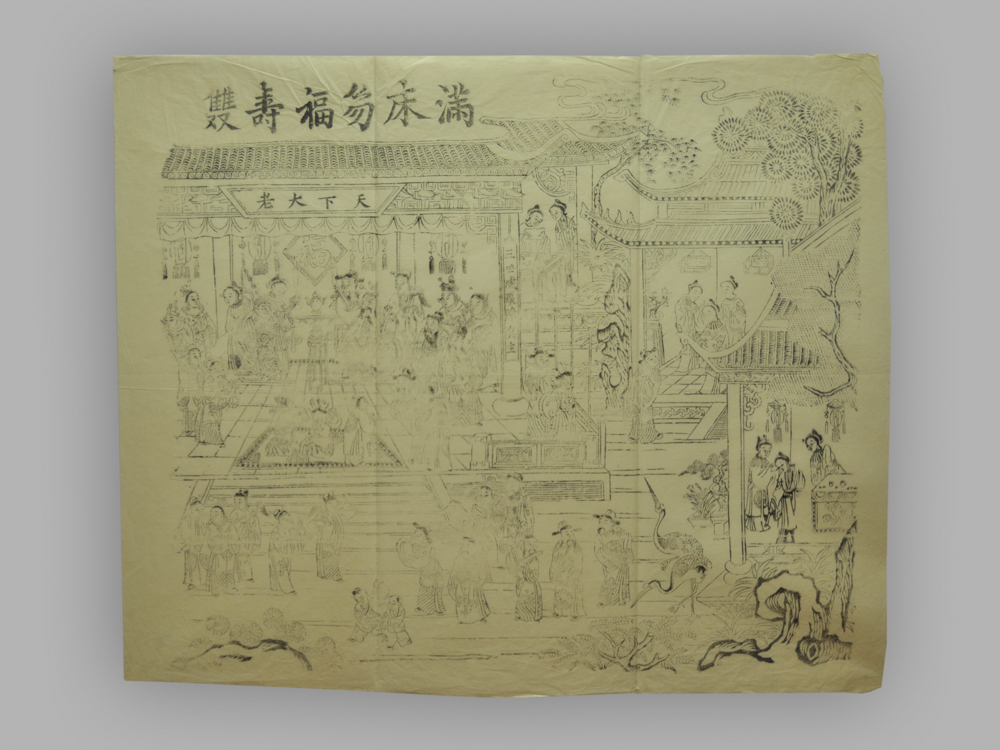 滿床笏福壽雙
天下大老
福